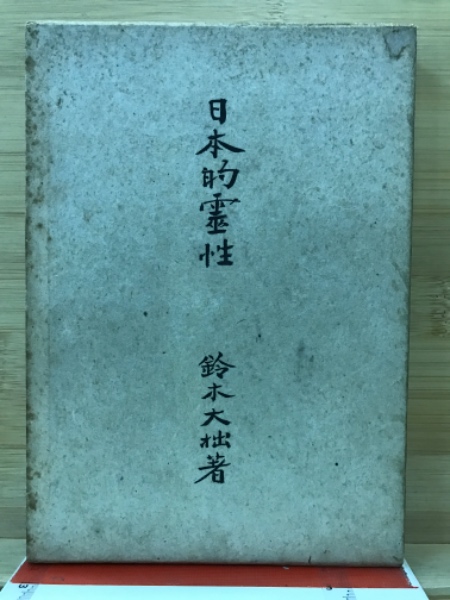 日本的靈性
鈴木大拙著